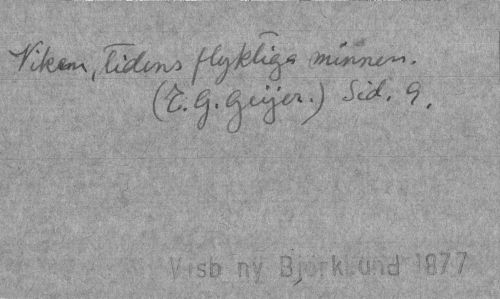 Viken, tidens flyktiga minnen.
(E. G. Geijer.) Sid. 9.
Visb ny Björklund 1877